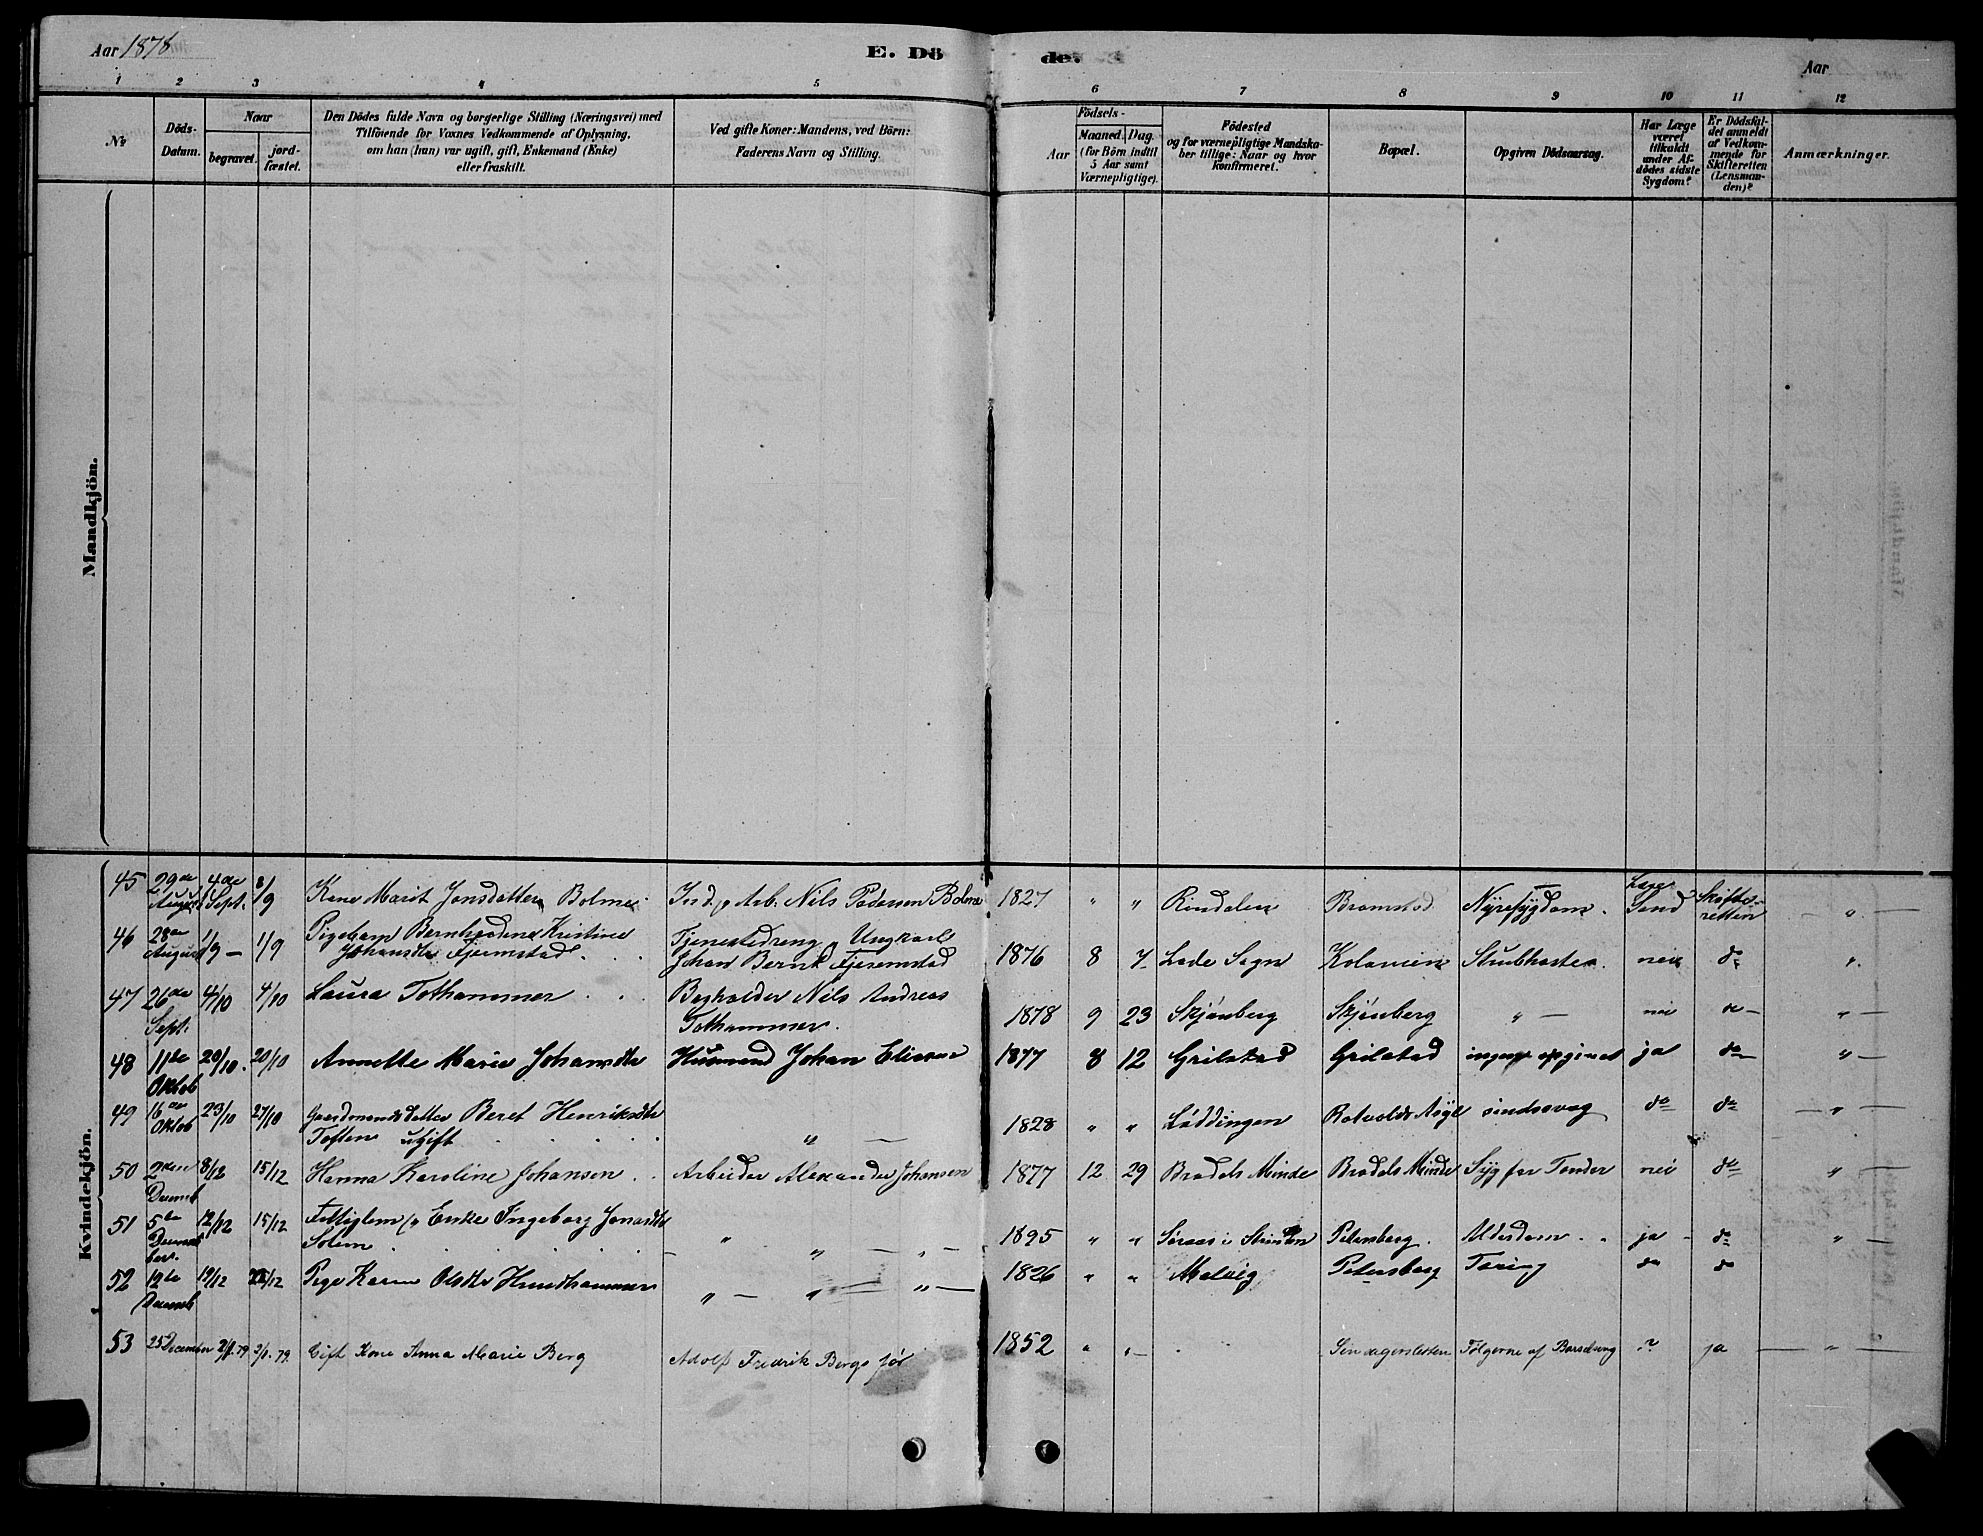 Aar 1878
E. Döde.
Aar
1 2 3 4 5 6 7 8 9 10 11 12
No
Döds-Datum.
Naar
begravet.
jordfæstet.
Den Dödes fulde Navn og borgerlige Stilling (Næringsvei) med
Tilföiende for Voxnes Vedkommende af Oplysning,
om han (hun) var ugift, gift, Enkemand (Enke)
eller fraskilt.
Ved gifte Koner: Mandens, ved Börn:
Faderens Navn og Stilling.
Födsels-
Aar
Maaned. Dag.
(for Börn indtil
5 Aar samt
Værnepligtige).
Födested
og for værnepligtige Mandska-
ber tillige: Naar og hvor
konfirmeret.
Bopæl.
Opgiven Dödsaarsag.
Har Læge
været
tilkaldt
under Af-
dödes sidste
Sygdom?
Er Dödsfal-
det anmeldt
af Vedkom-
mende for
Skifteretten
(Lensman-
den)?
Anmærkninger.
Mandkjön.
Kvindekjön.
45 29de August 4de Sept. 8/9 Kone Marit Jonsdatter Bolme Ind. Arb. Nils Pedersen Bolme 1827 " " Rindalen Bromstad Nyresygdom. Sind Skifteretten "
46 28de August 1/9 1/9 Pigebarn Bernhardine Kristine
Johansdtr Fjeemstad. Tjenestedreng Ungkarl
Johan Bernt 1876 8 7 Lade Sogn Kolamien Strubhoste nei do "
47 26de Sept. 4/10 4/10 Laura Tothammer Nils Andreas
Tothammer. 1878 9 23 Skjönberg Skjönberg " nei do "
48 11te Oktob 20/10 20/10 Annette Marie Johansdtr Husmand Johan Eliesen 1877 8 12 Grilstad Grilstad ingen opgivet ja do "
49 16de Oktob 23/10 27/10 Gaardmandsdatter Beret Henriksdtr
Toften ugift " 1828 " " Löddingen Rotvolds Asyl sindssvag do do "
50 2den Decemb 8/12 15/12 Hanna Karoline Johansen Arbeider Alexander Johansen 1877 12 29 Brodals Minde Brodals Minde Syg for Tænder nei do "
51 5te December. 12/12 15/12 Enke Ingeborg Jonasdtr
Solem " " " 1895 " " i Strinden Petersborg. Alderdom ja do "
52 12te Decemb 19/12 22/12 Pige Karen Olsdtr Hundhammer " " " 1826 " " Malvig Petersborg Tæring do do
53 25 December 2/1.79 2/1.79. Gift Kone Anna Marie Berg Adolf Fredrik Bergs 1852 " " Følgerne af Barselseng ? ja "